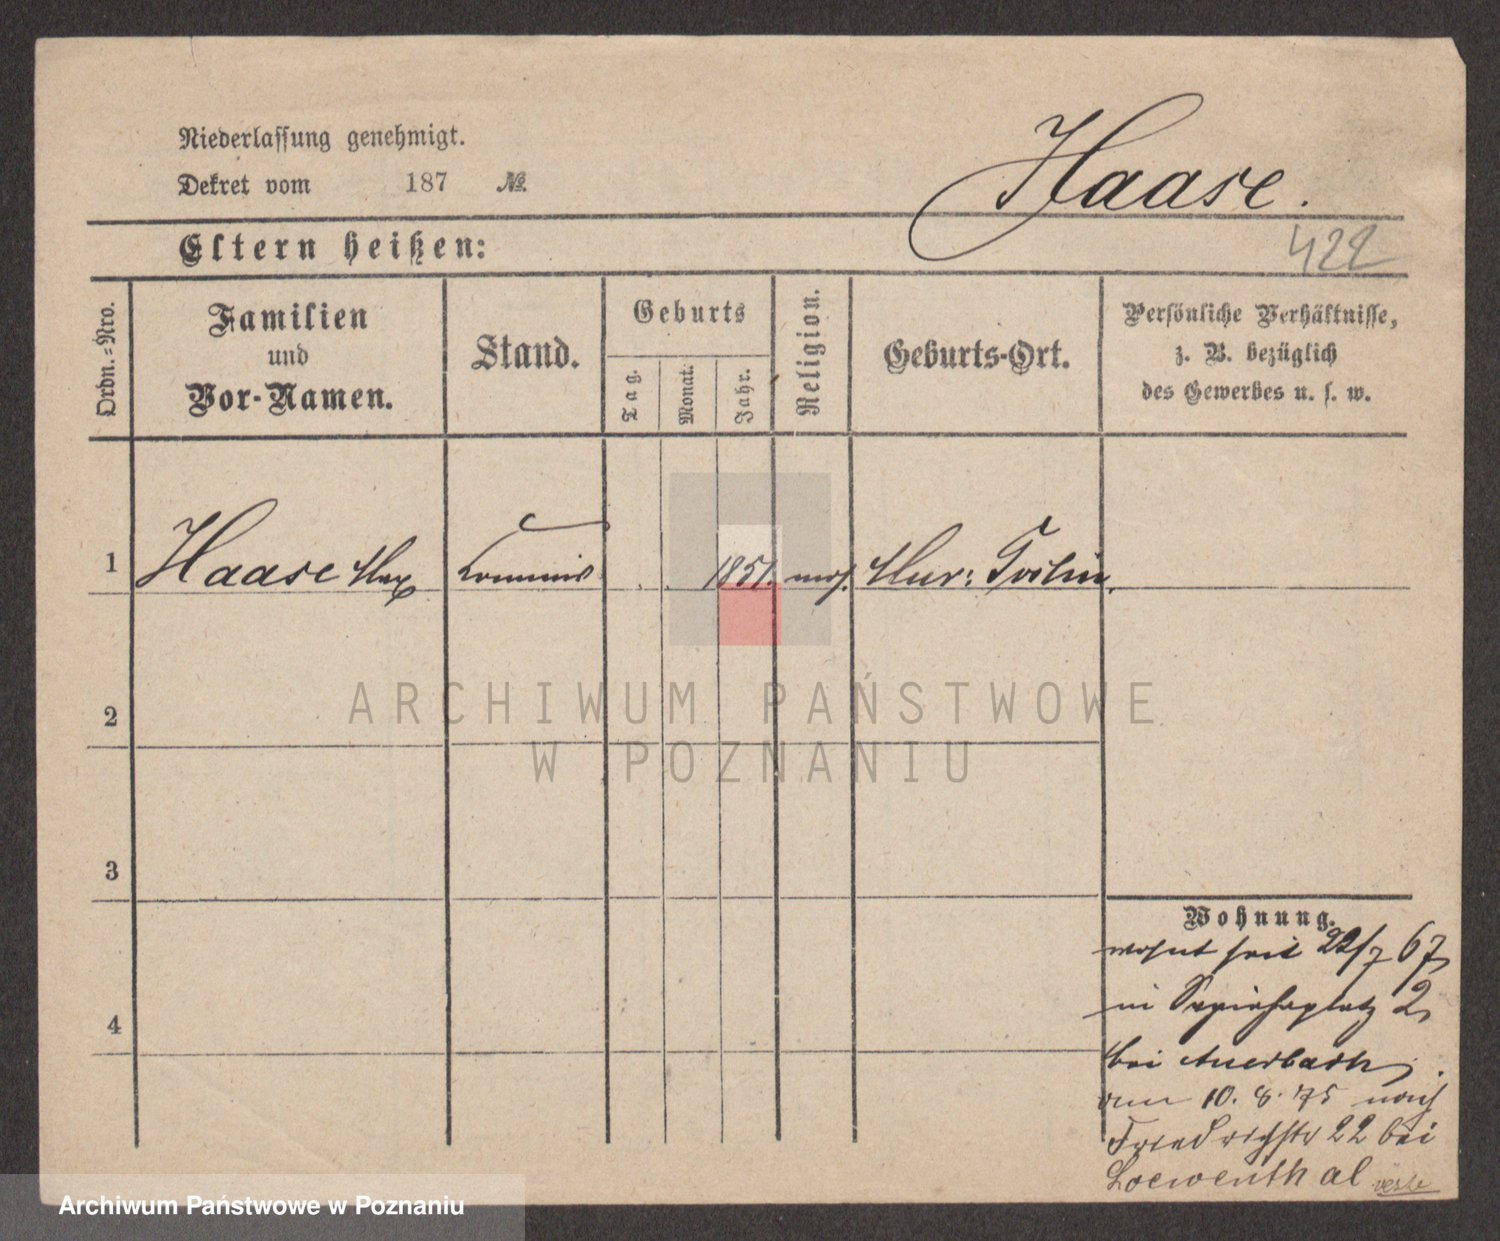 Niederlassung genehmigt.
Dekret vom 187 №
Haase.
422
Eltern heißen:
Ordn.=Nro.
Familien
und
Vor-Namen.
Stand.
Geburts
Tag.
Monat.
Jahr.
Religion.
Geburts-Ort.
Persönliche Verhältnisse,
z. B. bezüglich
des Gewerbes u. s. w.
1 Haase Max Commis 1851. mos. Mur: Goslin.
2
3
4
ARCHIWUM PAŃSTWOWE
W POZNANIU
Wohnung.
wohnt seit 22/7 67
in Sapiehaplatz 2,
bei Auerbach,
am 10. 8. 75 nach
Friedrichstr 22 bei
Loewenthal
Archiwum Państwowe w Poznaniu